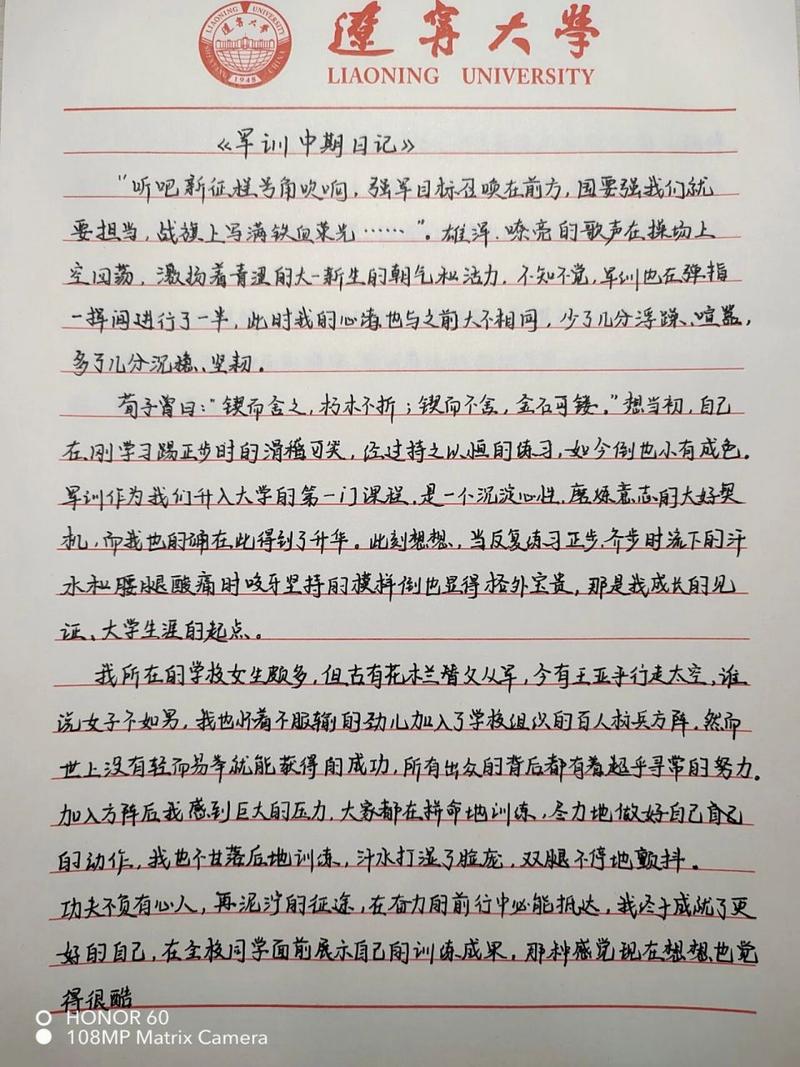 LIAONING UNIVERSITY
辽宁大学
SHENYANG CHINA
1948
遼寧大學
LIAONING UNIVERSITY
《军训中期日记》
“听吧新征程号角吹响，强军目标召唤在前方，国要强我们就
要担当，战旗上写满铁血荣光……”。雄浑、嘹亮的歌声在操场上
空回荡，激扬着青涩的大一新生的朝气和活力。不知不觉，军训也在弹指
一挥间进行了一半，此时我的心绪也与之前大不相同，少了几分浮躁、喧嚣，
多了几分沉稳、坚韧。
荀子曾曰：“锲而舍之，朽木不折；锲而不舍，金石可镂。”想当初，自己
在刚学习踢正步时的滑稽可笑，经过持之以恒的练习，如今倒也小有成色。
军训作为我们升入大学的第一门课程，是一个沉淀心性、磨炼意志的大好契
机，而我也的确在此得到了升华。此刻想想，当反复练习正步、齐步时流下的汗
水和腰腿酸痛时咬牙坚持的模样倒也显得格外宝贵，那是我成长的见
证、大学生涯的起点。
我所在的学校女生颇多，但古有花木兰替父从军，今有王亚平行走太空，谁
说女子不如男，我也怀着不服输的劲儿加入了学校组织的百人标兵方阵。然而
世上没有轻而易举就能获得的成功，所有出众的背后都有着超乎寻常的努力。
加入方阵后我感到巨大的压力，大家都在拼命地训练，尽力地做好自己自己
的动作，我也不甘落后地训练，汗水打湿了脸庞，双腿不停地颤抖。
功夫不负有心人，再泥泞的征途，在奋力的前行中必能抵达，我终于成就了更
好的自己，在全校同学面前展示自己的训练成果，那种感觉现在想想也觉
得很酷
HONOR 60
108MP Matrix Camera